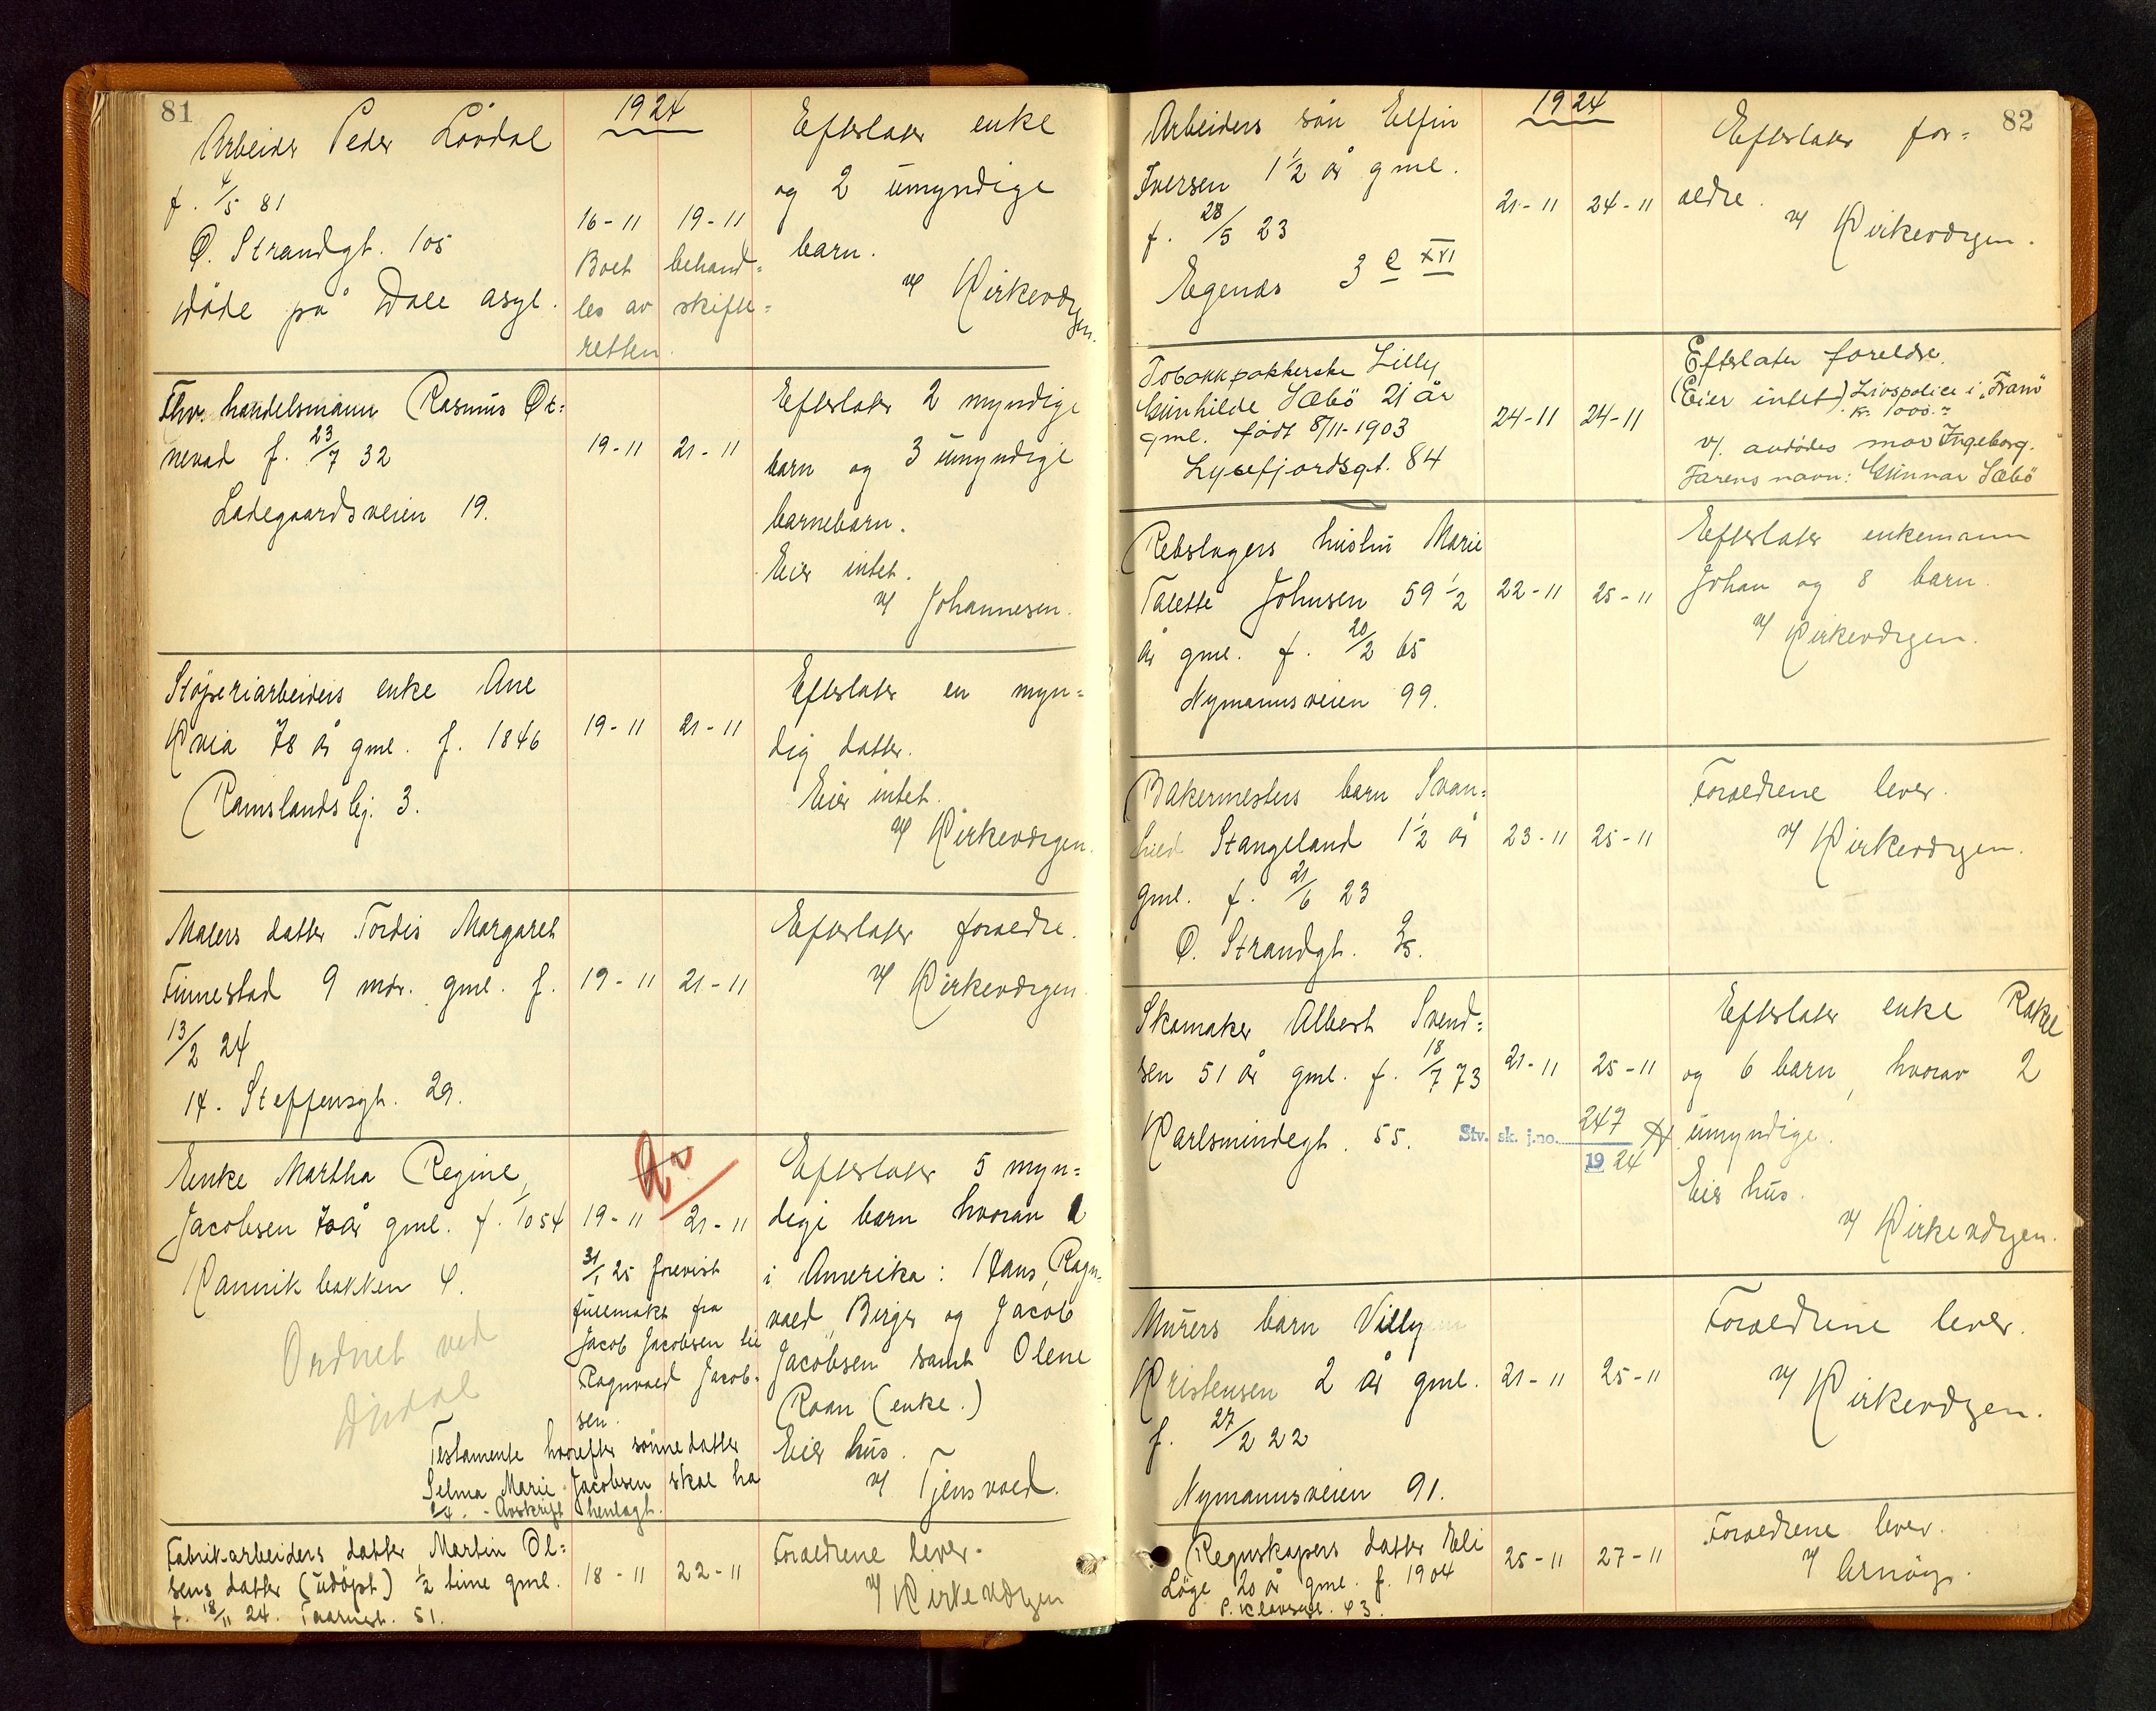 81
1924
Arbeider Peder Lövdal
f. 4/5 81
Ö. Strandgt. 105
döde på Dale asyl.
16-11 19-11
Boet behand=
les av skifte=
retten
Efterlater enke
og 2 umyndige
barn.
v/ Kirkevergen.
Fhv. handelsmann Rasmus
nevad f. 23/7 32
Ladegaardsveien 19.
19-11 21-11
Efterlater 2 myndige
barn og 3 umyndige
barnebarn.
Eier intet.
v/ Johannesen.
Stöperiarbeiders enke Ane
Kvia 78 år gml. f. 1846
Ramslandsbj. 3.
19-11 21-11
Efterlater en myn=
dig datter.
Eier intet.
v/ Kirkevergen.
Malers datter Tordis Margaret
Finnestad 9 mdr. gml. f.
13/2 24
14. Steffensgt. 29.
19-11 21-11
Efterlater foreldre.
v/ Kirkevergen.
Enke Martha Regine
Jacobsen 70 år gml. f. 1/10 54
Kannik bakken 4.
Ordnet ved
19-11 21-11
31/1 25 forevist
fullmakt fra
Jacob Jacobsen til
Ragnvald Jacob-
sen.
Testamente hvorefter sönnedatter
Selma Marie Jacobsen skal ha
Avskrift henlagt.
Efterlater 5 myn=
dige barn hvorav
i Amerika: Hans, Ragn-
vald, Birger og Jacob
Jacobsen samt Olene
Roan (enke.)
Eier hus.
v/ Tjensvold.
Fabrikarbeiders datter, Martin Ol=
sens datter (udöpt) 1/2 time gml.
f. 18/11 24. Taarngt. 51.
18-11 22-11
Foreldrene lever.
v/ Kirkevergen
82
1924
Arbeiders sön Elfin
Iversen 1 1/2 år gml.
f. 28/5 23
Egenes 3 e XVI
21-11 24-11
Efterlater for=
eldre.
v/ Kirkevergen.
Tobakkpakkerske Lilly
Gunhilde Sæbö 21 år
gml. födt 8/11-1903
Lysefjordsgt. 84
24-11 24-11
Efterlater foreldre.
(Eier intet) Livspolice i „Fram"
kr. 1000.-
v/ avdödes mor Ingeborg.
Farens navn: Gunnar Sæbö
Rebslagers hustru Marie
Talette Johnsen 59 1/2
år gml. f. 20/2 65
Nymannsveien 99.
22-11 25-11
Efterlater enkemann
Johan og 8 barn.
v/ Kirkevergen.
Bakermesters barn Svan=
hild Stangeland 1 1/2 år
gml. f. 21/6 23
Ö. Strandgt.
23-11 25-11
Foreldrene lever.
v/ Kirkevergen.
Skomaker Albert Svend=
sen 51 år gml. f. 18/7 73
Karlsmindegt. 55.
21-11 25-11
Stv. sk. j.no. 247
1924
Efterlater enke Rakel
og 6 barn, hvorav 2
umyndige.
Eier hus.
v/ Kirkevergen.
Murers barn Villy
Kristensen 2 år gml.
f. 27/2 22
Nymannsveien 91.
21-11 25-11
Foreldrene lever.
v/ Kirkevergen.
Regnskapers datter Eli
Löge 20 år gml. f. 1904
P. Klowsgt. 43.
25-11 27-11
Foreldrene lever.
v/ Arnöy.